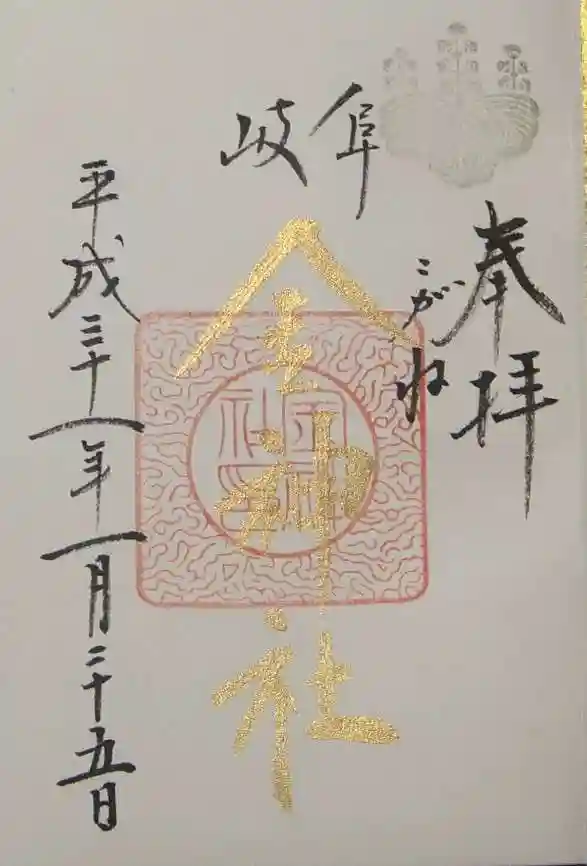 奉拝
岐阜
こがね
金神社
平成三十一年一月二十五日